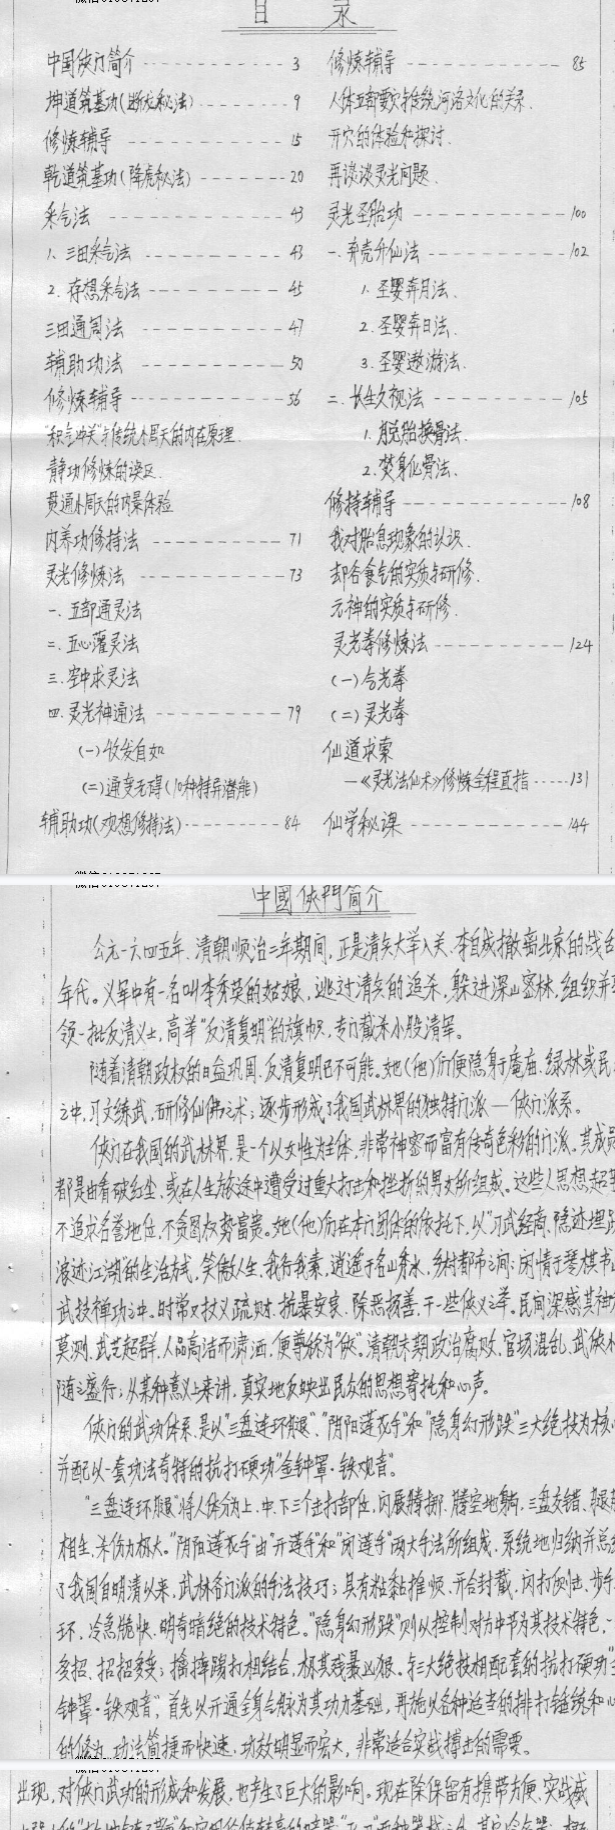 目 录
中国侠门简介 3
坤道筑基功(断龙秘法) 9
修炼辅导 15
乾道筑基功(降虎秘法) 20
采气法 43
1、三田采气法 43
2. 存想采气法 45
三田通周法 47
辅助功法 50
修炼辅导 56
"积气冲关"与传统小周天的内在原理.
静功修炼的误区.
贯通小周天的内景体验
内养功修持法 71
灵光修炼法 73
一. 五部通灵法
二. 五心灌灵法
三. 空中求灵法
四. 灵光神通法 79
(一)收发自如
(二)通变无碍(10种特异潜能)
辅助功(观想修持法) 84
修炼辅导 85
人体五部要穴与传统河洛文化的关系.
开穴的体验和探讨.
再谈谈灵光问题.
灵光圣胎功 100
一. 弃壳升仙法 102
1. 圣婴奔月法.
2. 圣婴奔日法.
3. 圣婴遨游法.
二. 长生久视法 105
1. 脱胎换骨法.
2. 焚身化骨法.
修持辅导 108
我对胎息现象的认识.
却谷食气的实质与研修.
元神的实质与研修.
灵光拳修炼法 124
(一)合光拳
(二)灵光拳
仙道求索
—《灵光法仙术》修炼全程直指 131
仙学秘课 144
中國侠門简介
公元一六四五年.清朝顺治二年期间,正是清兵大举入关.李自成撤离北京的战乱
年代。义军中有一名叫李秀英的姑娘,逃过清兵的追杀,躲进深山密林,组织并
领一批反清义士,高举"反清复明"的旗帜.专门截杀小股清军。
随着清朝政权的日益巩固.反清复明已不可能。她(他)们便隐身于庵庙.绿林或民
之中,习文练武,研修仙佛之术;逐步形成了我国武林界的独特门派—侠门派系。
侠门在我国的武林界,是一个以女性为主体,非常神密而富有传奇色彩的门派。其成员
都是由看破红尘,或在人生旅途中遭受过重大打击和挫折的男女所组成。这些人思想超
不追求名誉地位,不贪图权势富贵。她(他)们在本门团体的依托下,以"习武经商.隐迹埋
浪迹江湖"的生活方式,笑傲人生.我行我素,逍遥于名山秀水.乡村都市之间;闲情于琴棋书
武技禅功之中。时常又仗义疏财.抗暴安良.除恶扬善.干一些侠义之举。民间深感其神
莫测.武艺超群.人品高洁而潇洒,便尊称为"侠"。清朝末期政治腐败.官场混乱.武侠小
随之盛行;从某种意义上来讲,真实地反映出民众的思想寄托和心声。
侠门的武功体系.是以"三盘连环腿"、"阴阳莲花手"和"隐身幻形跌"三大绝技为核
并配以一套功法奇特的抗打硬功"金钟罩·铁观音"。
"三盘连环腿"将人体分为上.中.下三个击打部位,闪展腾挪.腾空地躺,三盘交错.
相生.杀伤力极大。"阴阳莲花手"由"开莲手"和"闭莲手"两大手法所组成.系统地归纳并总
了我国自明清以来,武林各门派的手法技巧;具有粘黏推顺、开合封截、闪打倒出、步手
环,冷急脆快.明奇暗绝的技术特色。"隐身幻形跌"则以控制对方中节为其技术特色,一
多招、招招多变;擒摔踢打相结合,极其残暴凶狠。与三大绝技相配套的抗打硬功"
钟罩·铁观音",首先以开通全身气脉为其功力基础,再施以各种适当的排打锤练和
的修为.功法简捷而快速.功效明显而宏大,非常适合实战搏击的需要。
出现,对侠门武功的形成和发展.也产生了巨大的影响。现在除保留有携带方便.实战威